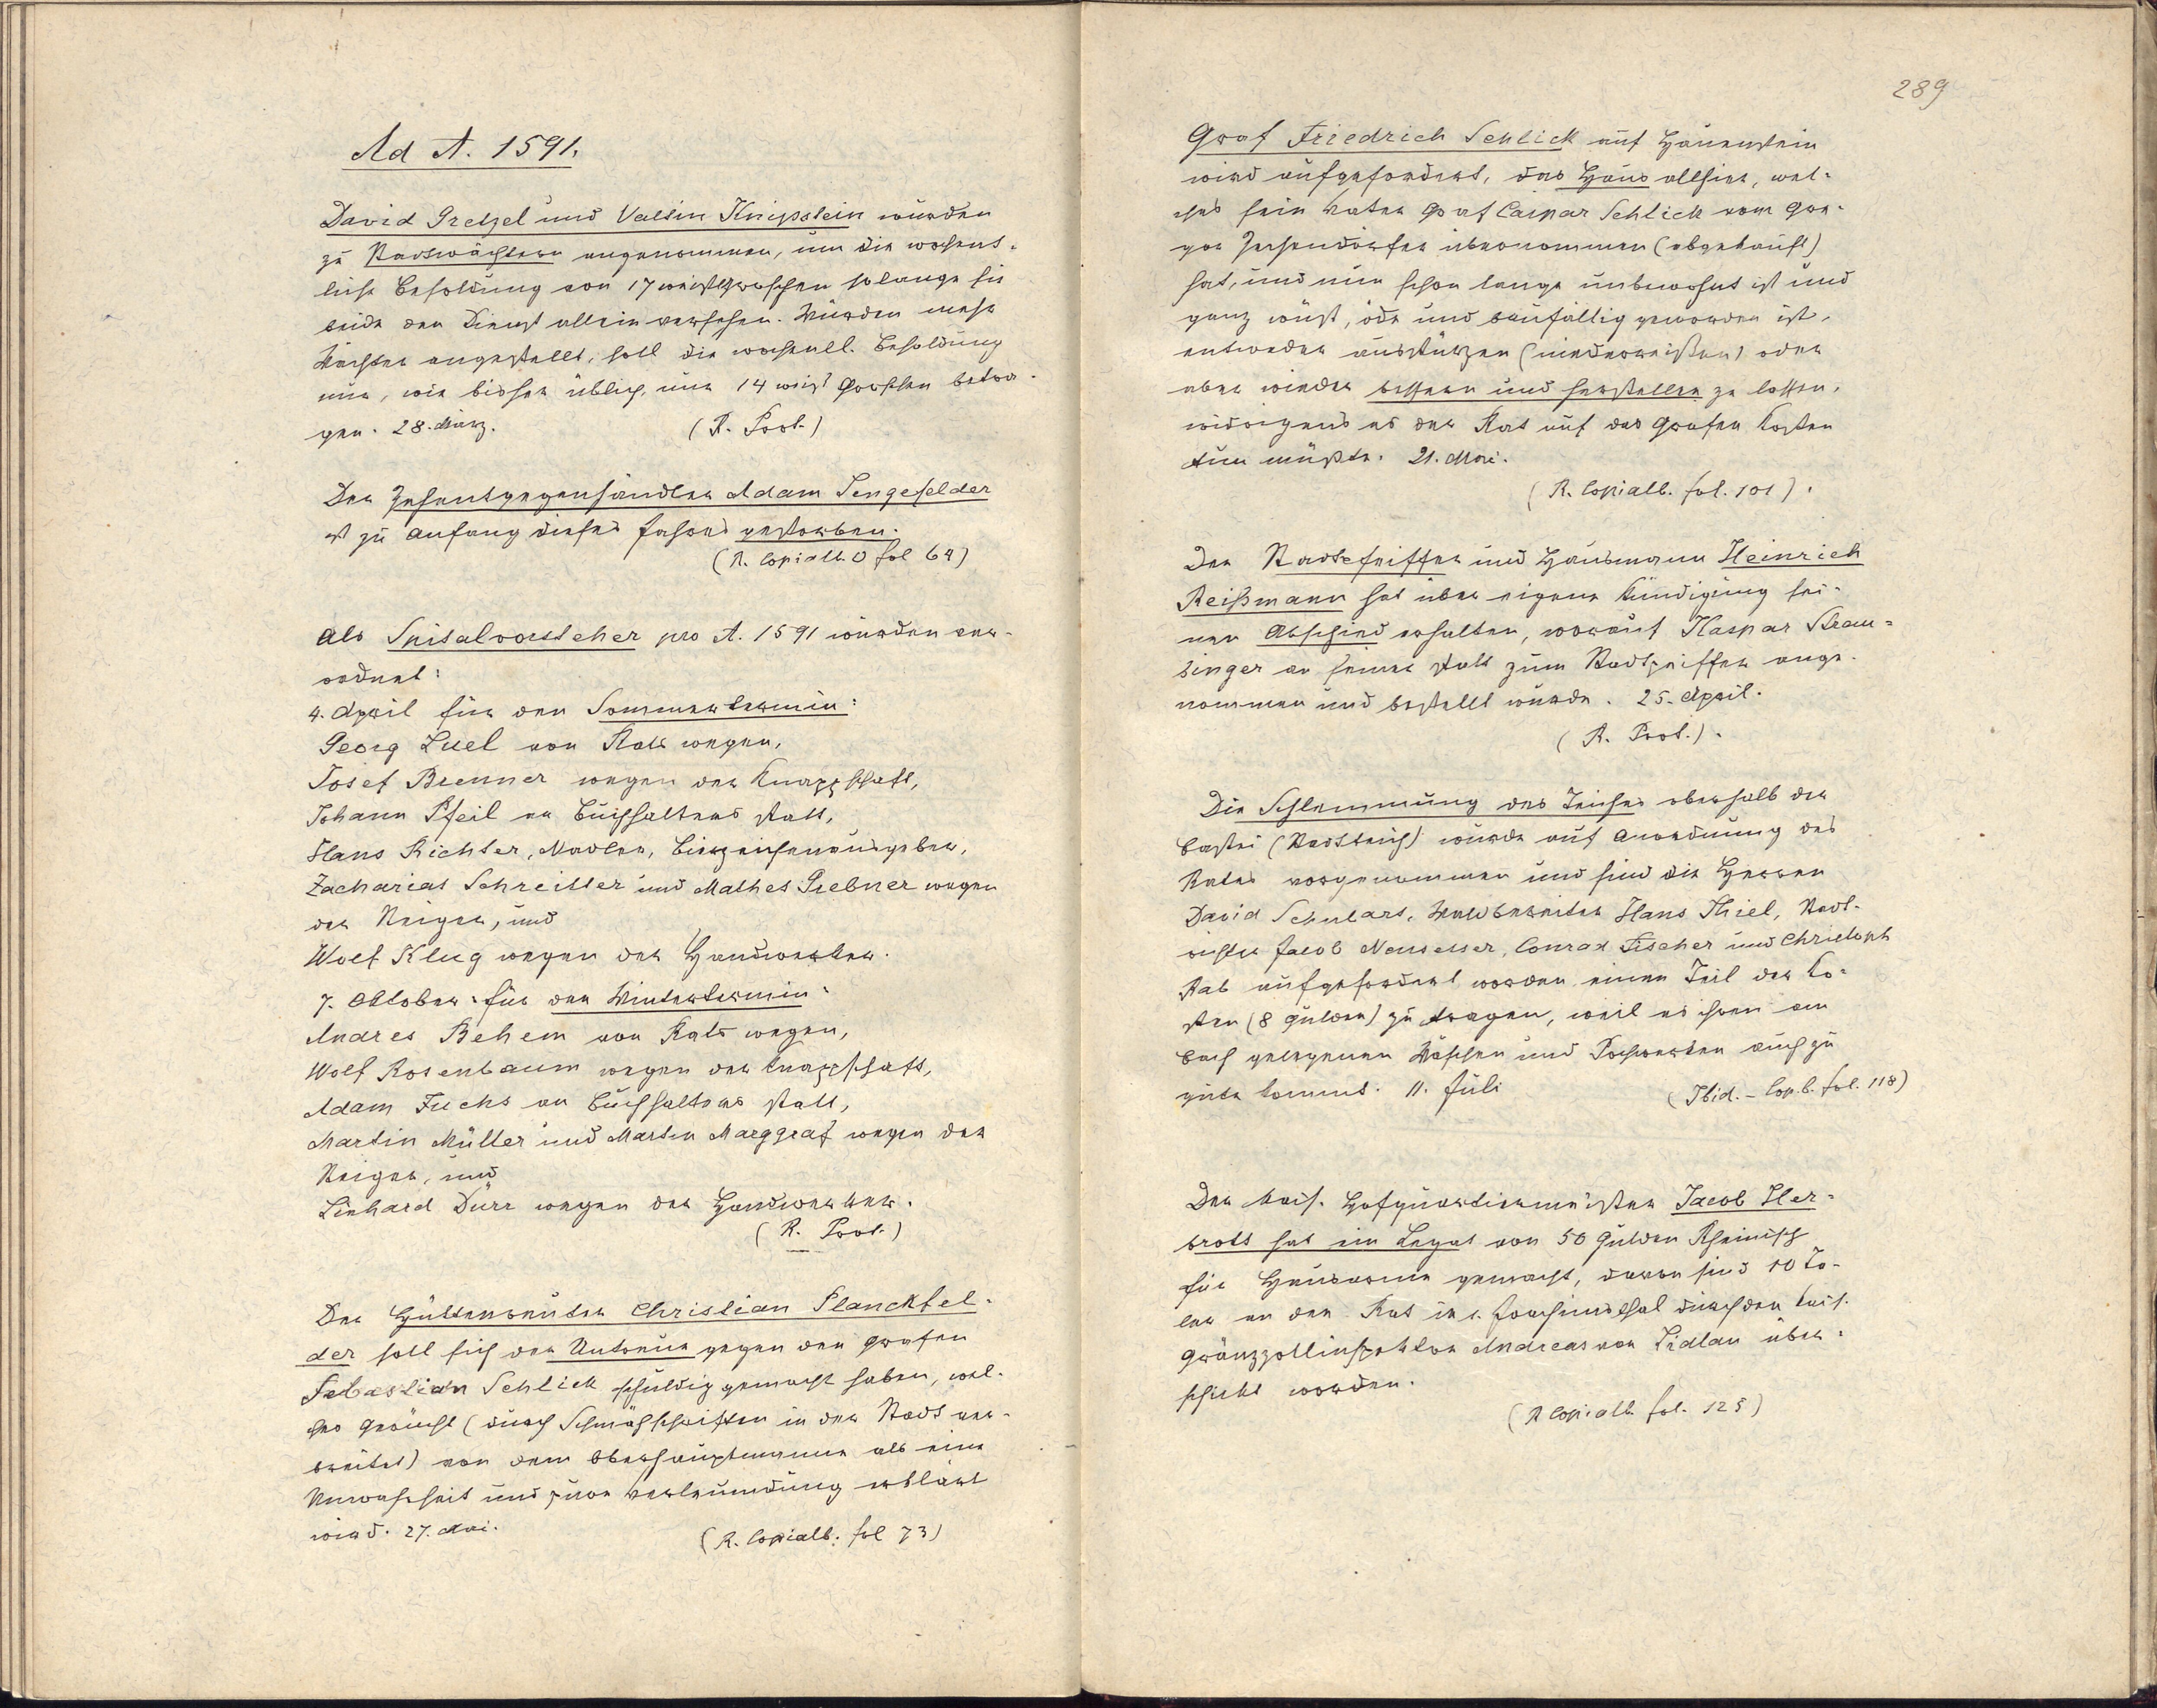 Ad A. 1591.
David Gretzel und Valtin Knipstein wurden
zu Stadtwächtern angenommen, um die wochent-
liche Besoldung von 17 weißgroschen solange sie
beide den Dienst allein versehen. Würden mehr
Wächter angestellt, soll die wochentl. Besoldung
nur, wie bisher üblich, nur 14 weiß Groschen betra-
gen. 28. März. (R. Prot.)
Der Zehentgegenhändler Adam Sengefelder
ist zu Anfang dieses Jahres gestorben.
(R. Copialb. O fol 64)
Als Spitalvorsteher pro A. 1591 wurden ver-
ordnet:
4. April für den Sommertermin:
Georg Luel von Rats wegen,
Josef Brenner wegen der Knappschaft,
Johann Pfeil an Buchhalters statt,
Hans Richter, Nadler, Bierzeichenausgeber,
Zacharias Schreitter und Mathes Grebner wegen
der Steiger, und
Wolf Klug wegen der Handwerker.
7. Oktober für den Wintertermin:
Andres Behem von Rats wegen,
Wolf Rosenbaum wegen der Knappschaft,
Adam Fuchs an Buchhalters statt,
Martin Müller und Martin Marggraf wegen der
Steiger, und
Linhard Dürr wegen der Handwerker.
(R. Prot.)
Der Hüttenreuter Christian Planckfel-
der soll sich der Untreue gegen den Grafen
Sebastian Schlick schuldig gemacht haben, wel-
ches Gerücht (durch Schmähschriften in der Stadt ver-
breitet) von dem Oberhauptmanne als eine
Unwahrheit und pure Verleumdung erklärt
wird. 27. Mai. (R. Copialb. fol 73)
289
Graf Friedrich Schlick auf Hauenstein
wird aufgefordert, das Haus allhier, wel-
ches sein Vater Graf Caspar Schlick vom Gre-
gor Zechendorfer übernommen (abgekauft)
hat, und nun schon lange unbewohnt ist und
ganz wüst, öde und baufällig geworden ist,
entweder ausstürzen (niederreißen) oder
aber wieder bessern und herstellen zu lassen,
widrigens es der Rat auf des Grafen Kosten
tun müßte. 21. Mai.
(R. Copialb. fol. 101).
Der Stadtpfeiffer und Hausmann Heinrich
Reißmann hat über eigene Kündigung sei-
nen Abschied erhalten, worauf Kaspar Stram-
binger an seiner statt zum Stadtpfeiffer ange-
nommen und bestellt wurde. 25. April.
(R. Prot.).
Die Schlemmung des Teiches oberhalb der
Bastei (Stadtteich) wurde auf Anordnung des
Rates vorgenommen und sind die Herren
David Schubart, Waldbereiter Hans Thiel, Stadt-
richter Jacob Neusesser, Conrad Fischer und Christoph
Rab aufgefordert worden einen Teil der Ko-
sten (8 Gulden) zu tragen, weil es ihren am
Bach gelegenen Wäschen und Pochwerken auch zu
gute kommt. 11. Juli (Ibid. - Cop. b. fol. 118)
Der kais. Hofquartiermeister Jacob Her-
brott hat ein Legat von 50 Gulden Rheinisch
für Hausarme gemacht, davon sind 10 Ta-
ler an den Rat in s. Joachimsthal durch den kais.
Gränzzollinspektor Andreas von Lidlau über-
schickt worden.
(R Copialb. fol. 125)